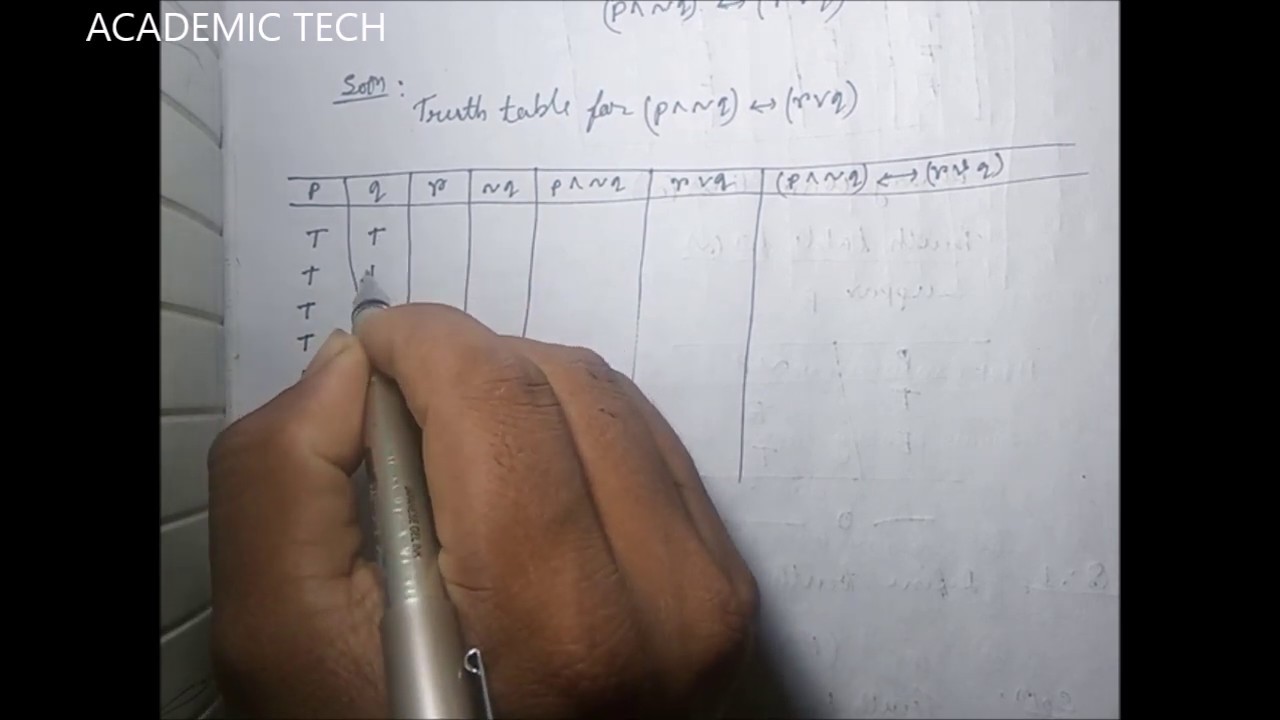 ACADEMIC TECH
(p∧~q) ↔ (r∨q)
Soln:
Truth table for (p∧~q) ↔ (r∨q)
p q r ~q p∧~q r∨q (p∧~q) ↔ (r∨q)
T T
T T
T
T